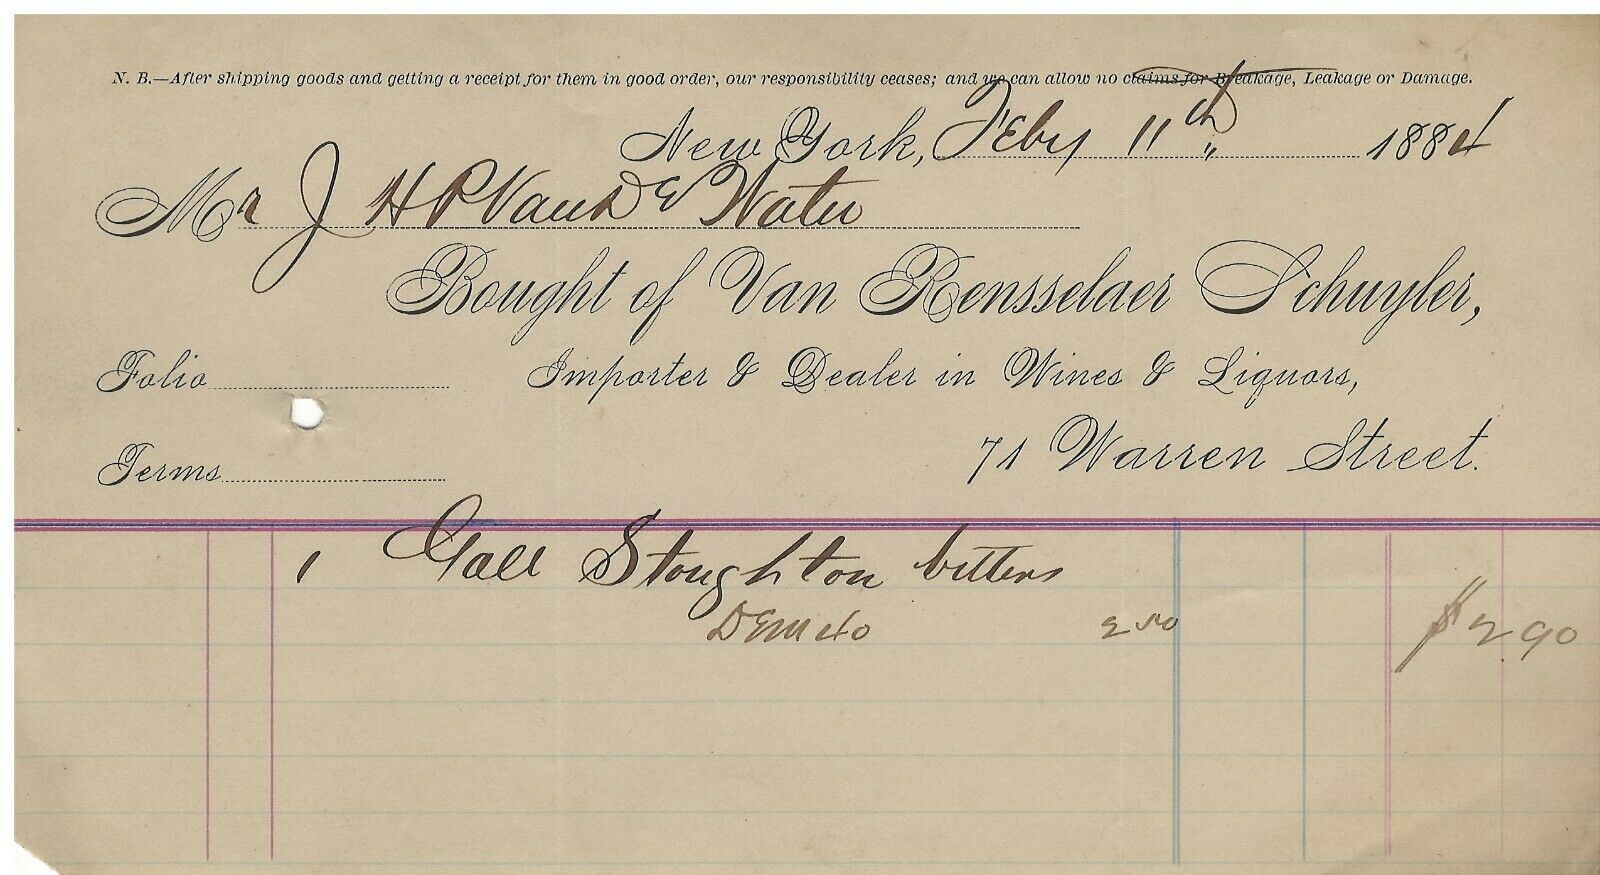 N. B.—After shipping goods and getting a receipt for them in good order, our responsibility ceases; and we can allow no claims for Breakage, Leakage or Damage.
New York, Feby 11th 1884
Mr J H P Van De Water
Bought of Van Rensselaer Schuyler,
Folio Importer & Dealer in Wines & Liquors,
Terms 71 Warren Street.
1 Gall Stoughton bitters
Dem 40 2 50 $2.90